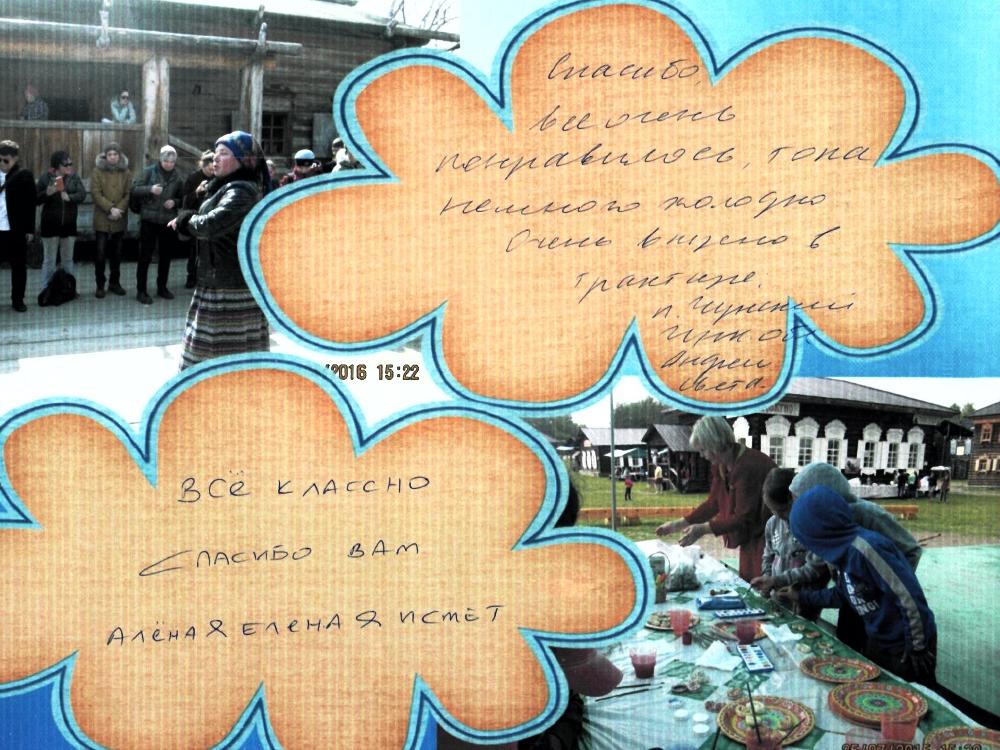 Спасибо,
все очень
понравилось, тока
немного холодно
Очень вкусно в
трактире.
п. Чунский
Андрей
Света.
/2016 15:22
ВСЁ КЛАССНО
СПАСИБО ВАМ
АЛЁНА Я ЕЛЕНА Я ИСМЕТ